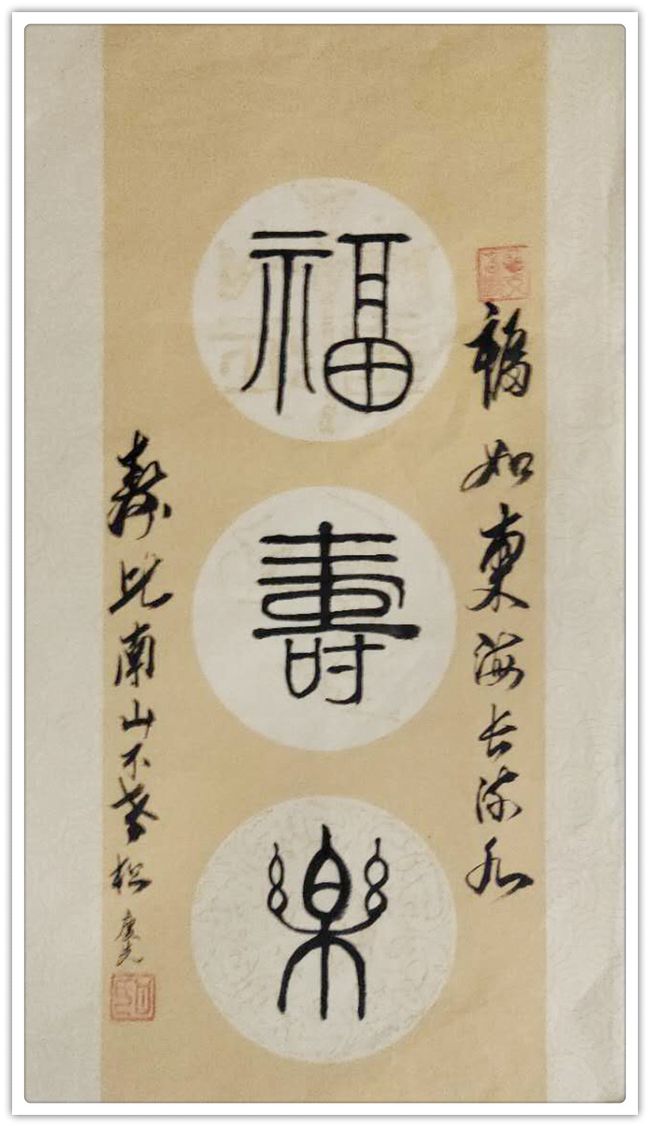 福如東海長流水
福
壽
樂
壽比南山不老松